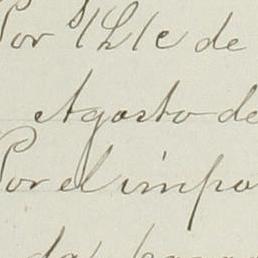 Por S/L/c de
Agosto de
Por el impo